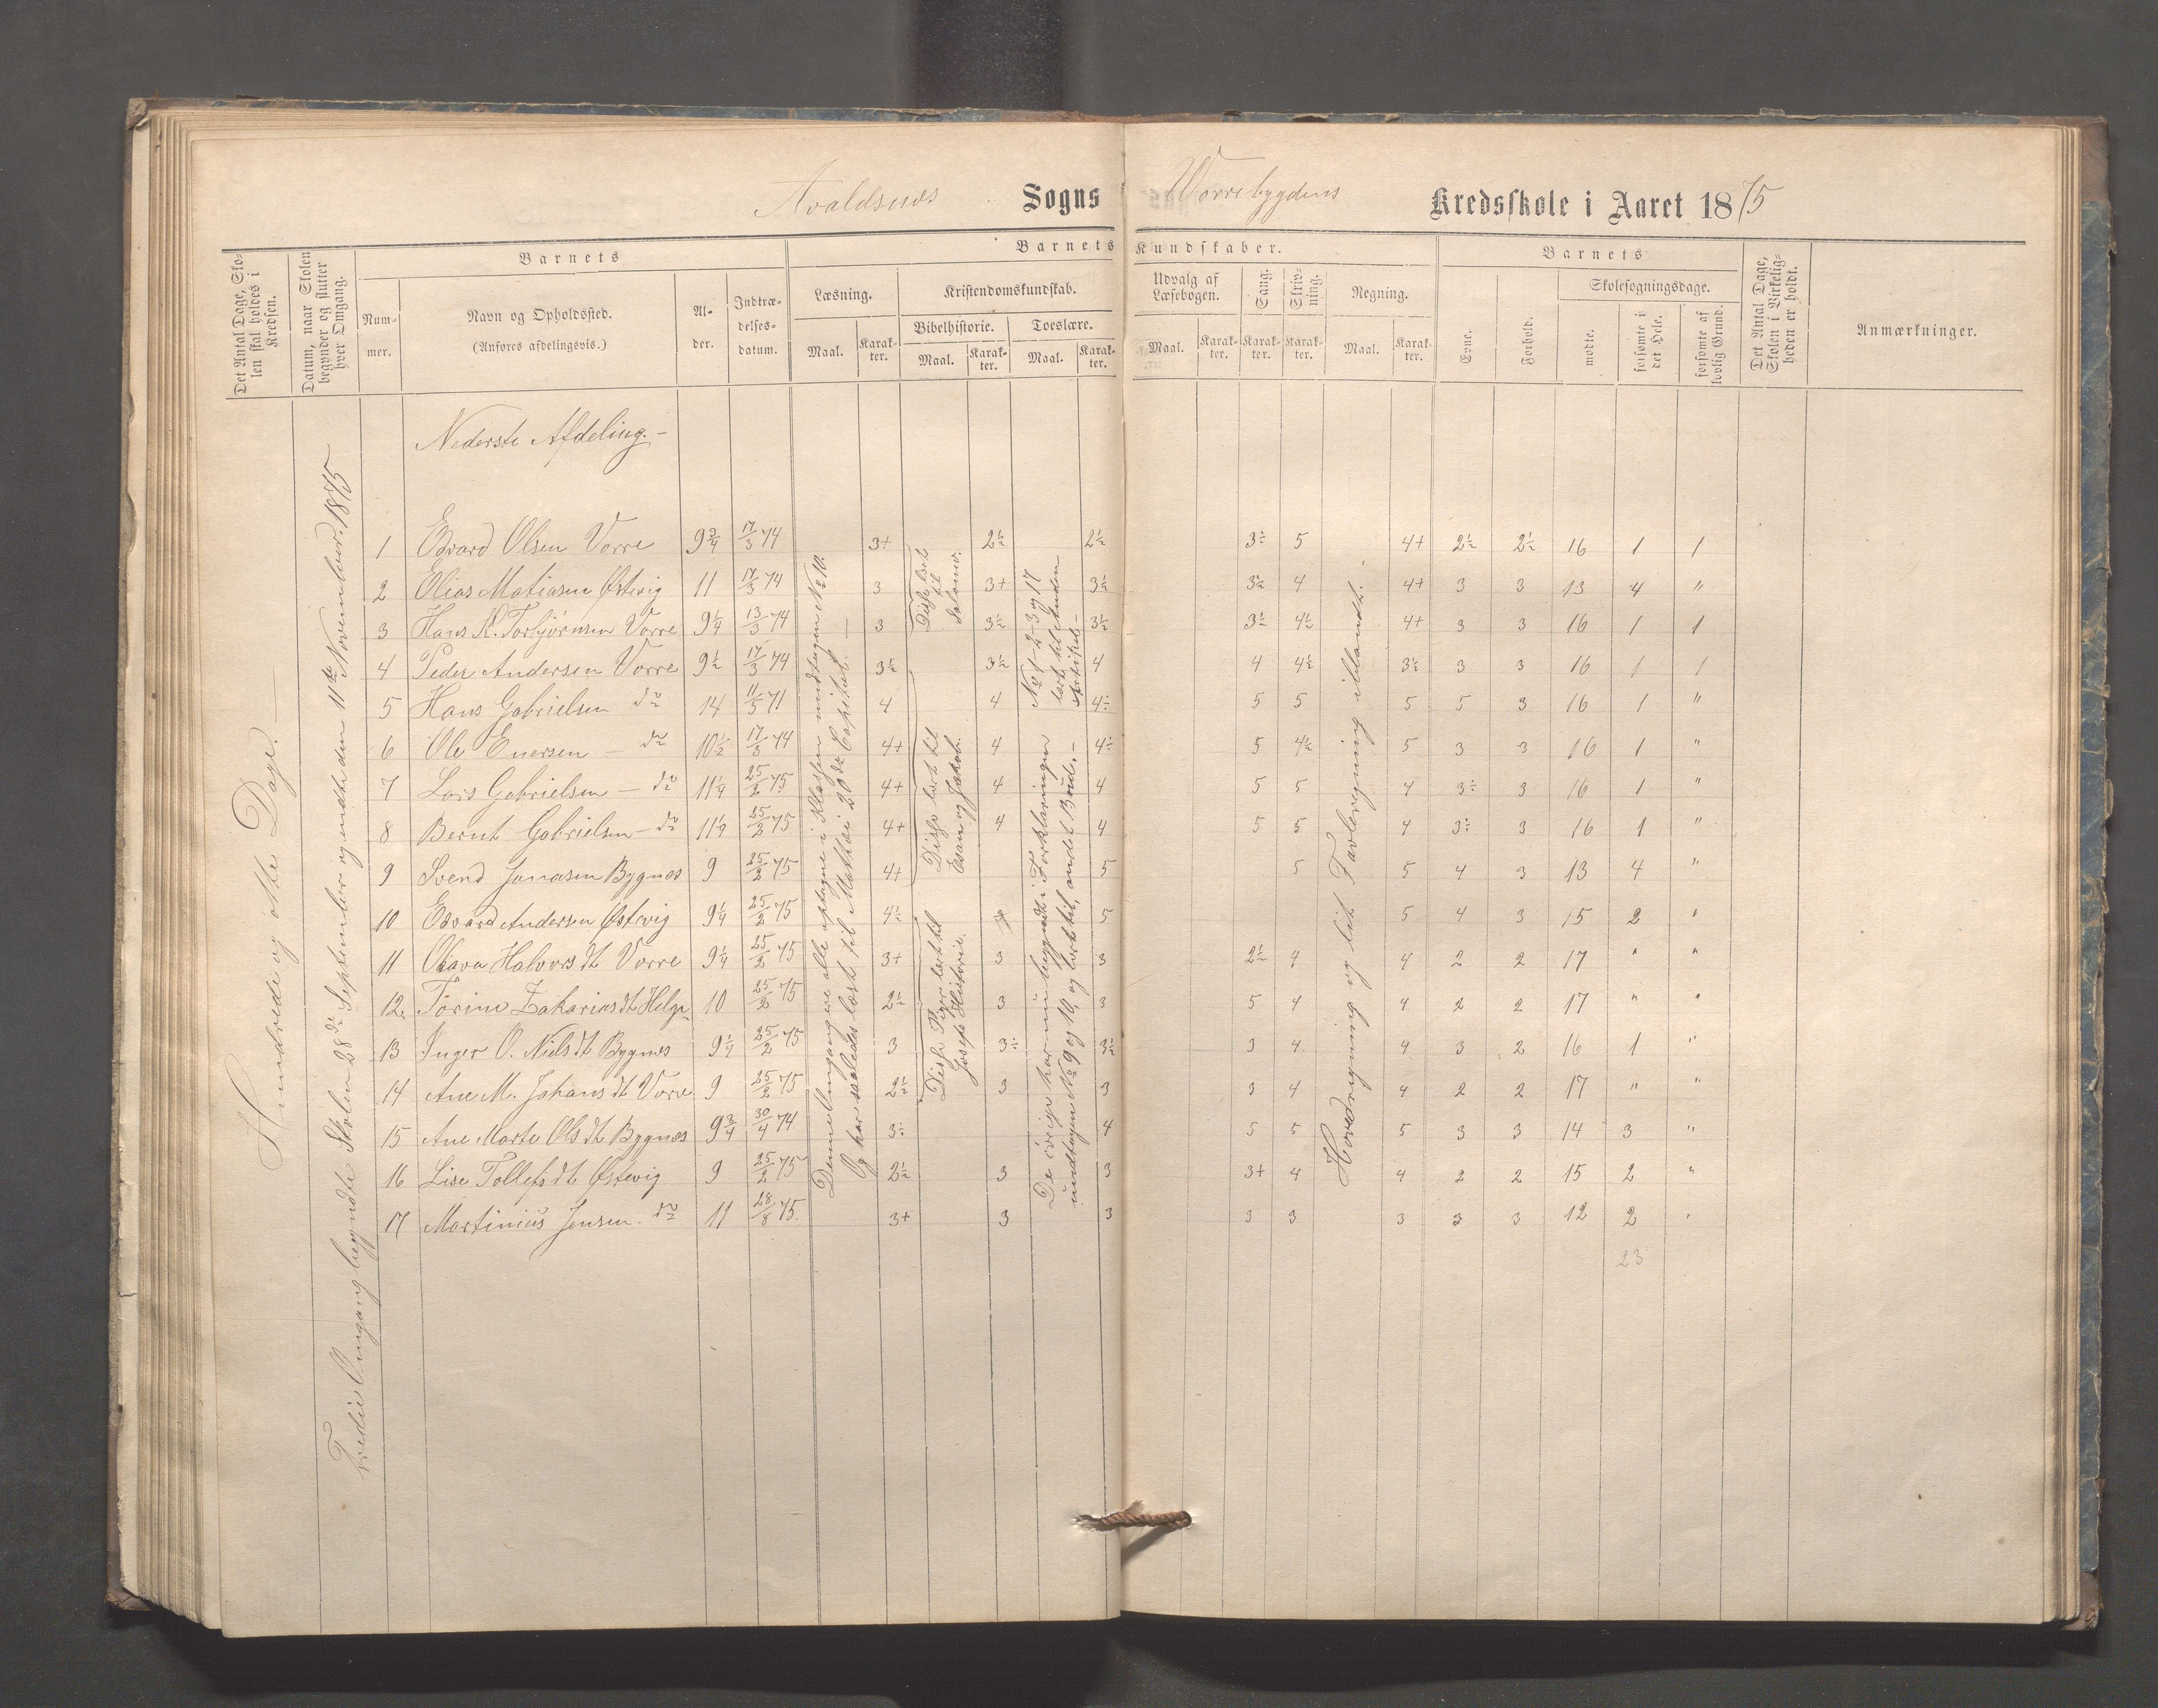 Avaldsnæs Sogns Vorrebygdens Kredsskole i Aaret 1875
Det Antal Dage, Skolen skal holdes i Kredsen.
Datum, naar Skolen begynder og slutter hver Omgang.
Barnets
Nummer.
Navn og Opholdssted.
(Anføres afdelingsvis.)
Alder.
Indtrædelsesdatum.
Barnets Kundskaber.
Læsning.
Maal. Karakter.
Kristendomskundskab.
Bibelhistorie. Troeslære.
Maal. Karakter. Maal. Karakter.
Udvalg af Læsebogen.
Maal. Karakter.
Sang. Karakter.
Skrivning. Karakter.
Regning.
Maal. Karakter.
Barnets
Evne. Forhold.
Skolesøgningsdage.
mødte. forsømte i det Hele. forsømte af lovlig Grund.
Det Antal Dage, Skolen i Virkeligheden er holdt.
Anmærkninger.
Hundrede og otte Dage.
Tredie Omgang begyndte Skolen 28de September og endte den 11te November 1875
Nederste Afdeling.
1 Edvard Olsen Vorre 9 3/4 17/3 74 3+ 2 1/2 2 1/2 3÷ 5 4+ 2 1/2 2 1/2 16 1 1
2 Elias Matiasen Østevig 11 17/3 74 3 3+ 3 1/2 3 1/2 4 4+ 3 3 13 4 "
3 Hans K. Torbjørnsen Vorre 9 1/4 13/3 74 3 3 1/2 3 1/2 3 1/2 4 1/2 4+ 3 3 16 1 1
4 Peder Andersen Vorre 9 1/2 17/3 74 3 1/2 3 1/2 4 4 4 1/2 3 1/2 3 3 16 1 1
5 Hans Gabrielsen do 14 11/5 71 4 4 4÷ 5 5 5 5 3 16 1 "
6 Ole Enersen - do 10 1/2 17/3 74 4+ 4 4÷ 5 4 1/2 5 3 3 16 1 "
7 Lars Gabrielsen - do 11 1/4 25/2 75 4+ 4 4 5 5 4 3÷ 3 16 1 "
8 Bernt Gabrielsen - do 11 1/4 25/2 75 4+ 4 4 5 5 4 3÷ 3 16 1 "
9 Svend Jonasen Bygnes 9 25/2 75 4+ 5 5 5 4 3 13 4 "
10 Edvard Andersen Østevig 9 1/4 25/2 75 4 1/2 5 5 4 3 15 2 "
11 Olava Halvorsdt Vorre 9 1/4 25/2 75 3+ 3 3 2 1/2 4 4 2 2 17 " "
12. Torine Zakariasdt Helge 10 25/2 75 2 1/2 3 3 5 4 4 2 2 17 " "
13 Inger O. Nielsdt Bygnes 9 1/4 25/2 75 3 3÷ 3 1/2 3 4 4 3 2 16 1 "
14 Ane M. Johansdt Vorre 9 25/2 75 2 1/2 3 3 3 4 4 2 2 17 " "
15 Ane Marte Olsdt Bygnes 9 3/4 30/4 74 3÷ 4 5 5 5 3 3 14 3 "
16 Lise Tollefsdt Østevig 9 25/2 75 2 1/2 3 3 3+ 4 4 2 2 15 2 "
17 Martinius Jensen - do 11 28/8 75. 3+ 3 3 3 3 3 3 3 12 2 "
23
Denne Omgang ere alle optagne i Klassen undtagen No 10.
Og har saaledes læst til Mathæi 20de Capitel. -
Disse læst til Salomo.
Disse læst til Esau og Jakob.
Disse Piger læst til Josefs Historie.
No 1-2-3 og 17 læst til Anden Artikel -
De øvrige har nu begyndt i Forklaringen undtagen No 9 og 10, og læst til andet Bud. -
Hovedregning og lidt Tavleregning iblandt.